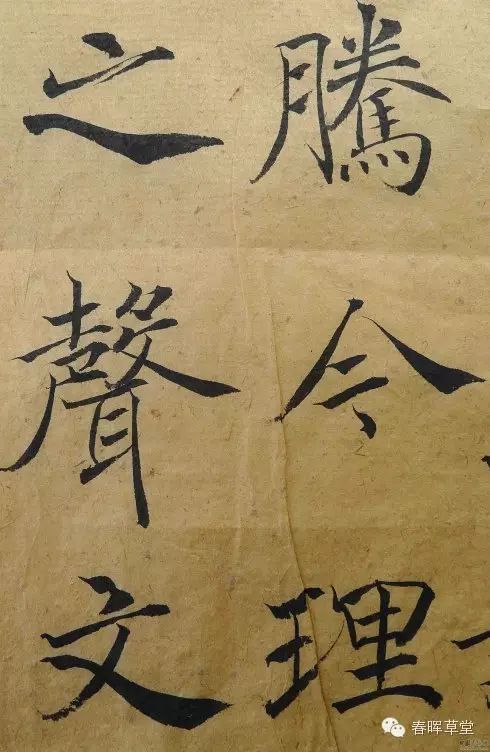 騰令理
之聲文
春晖草堂